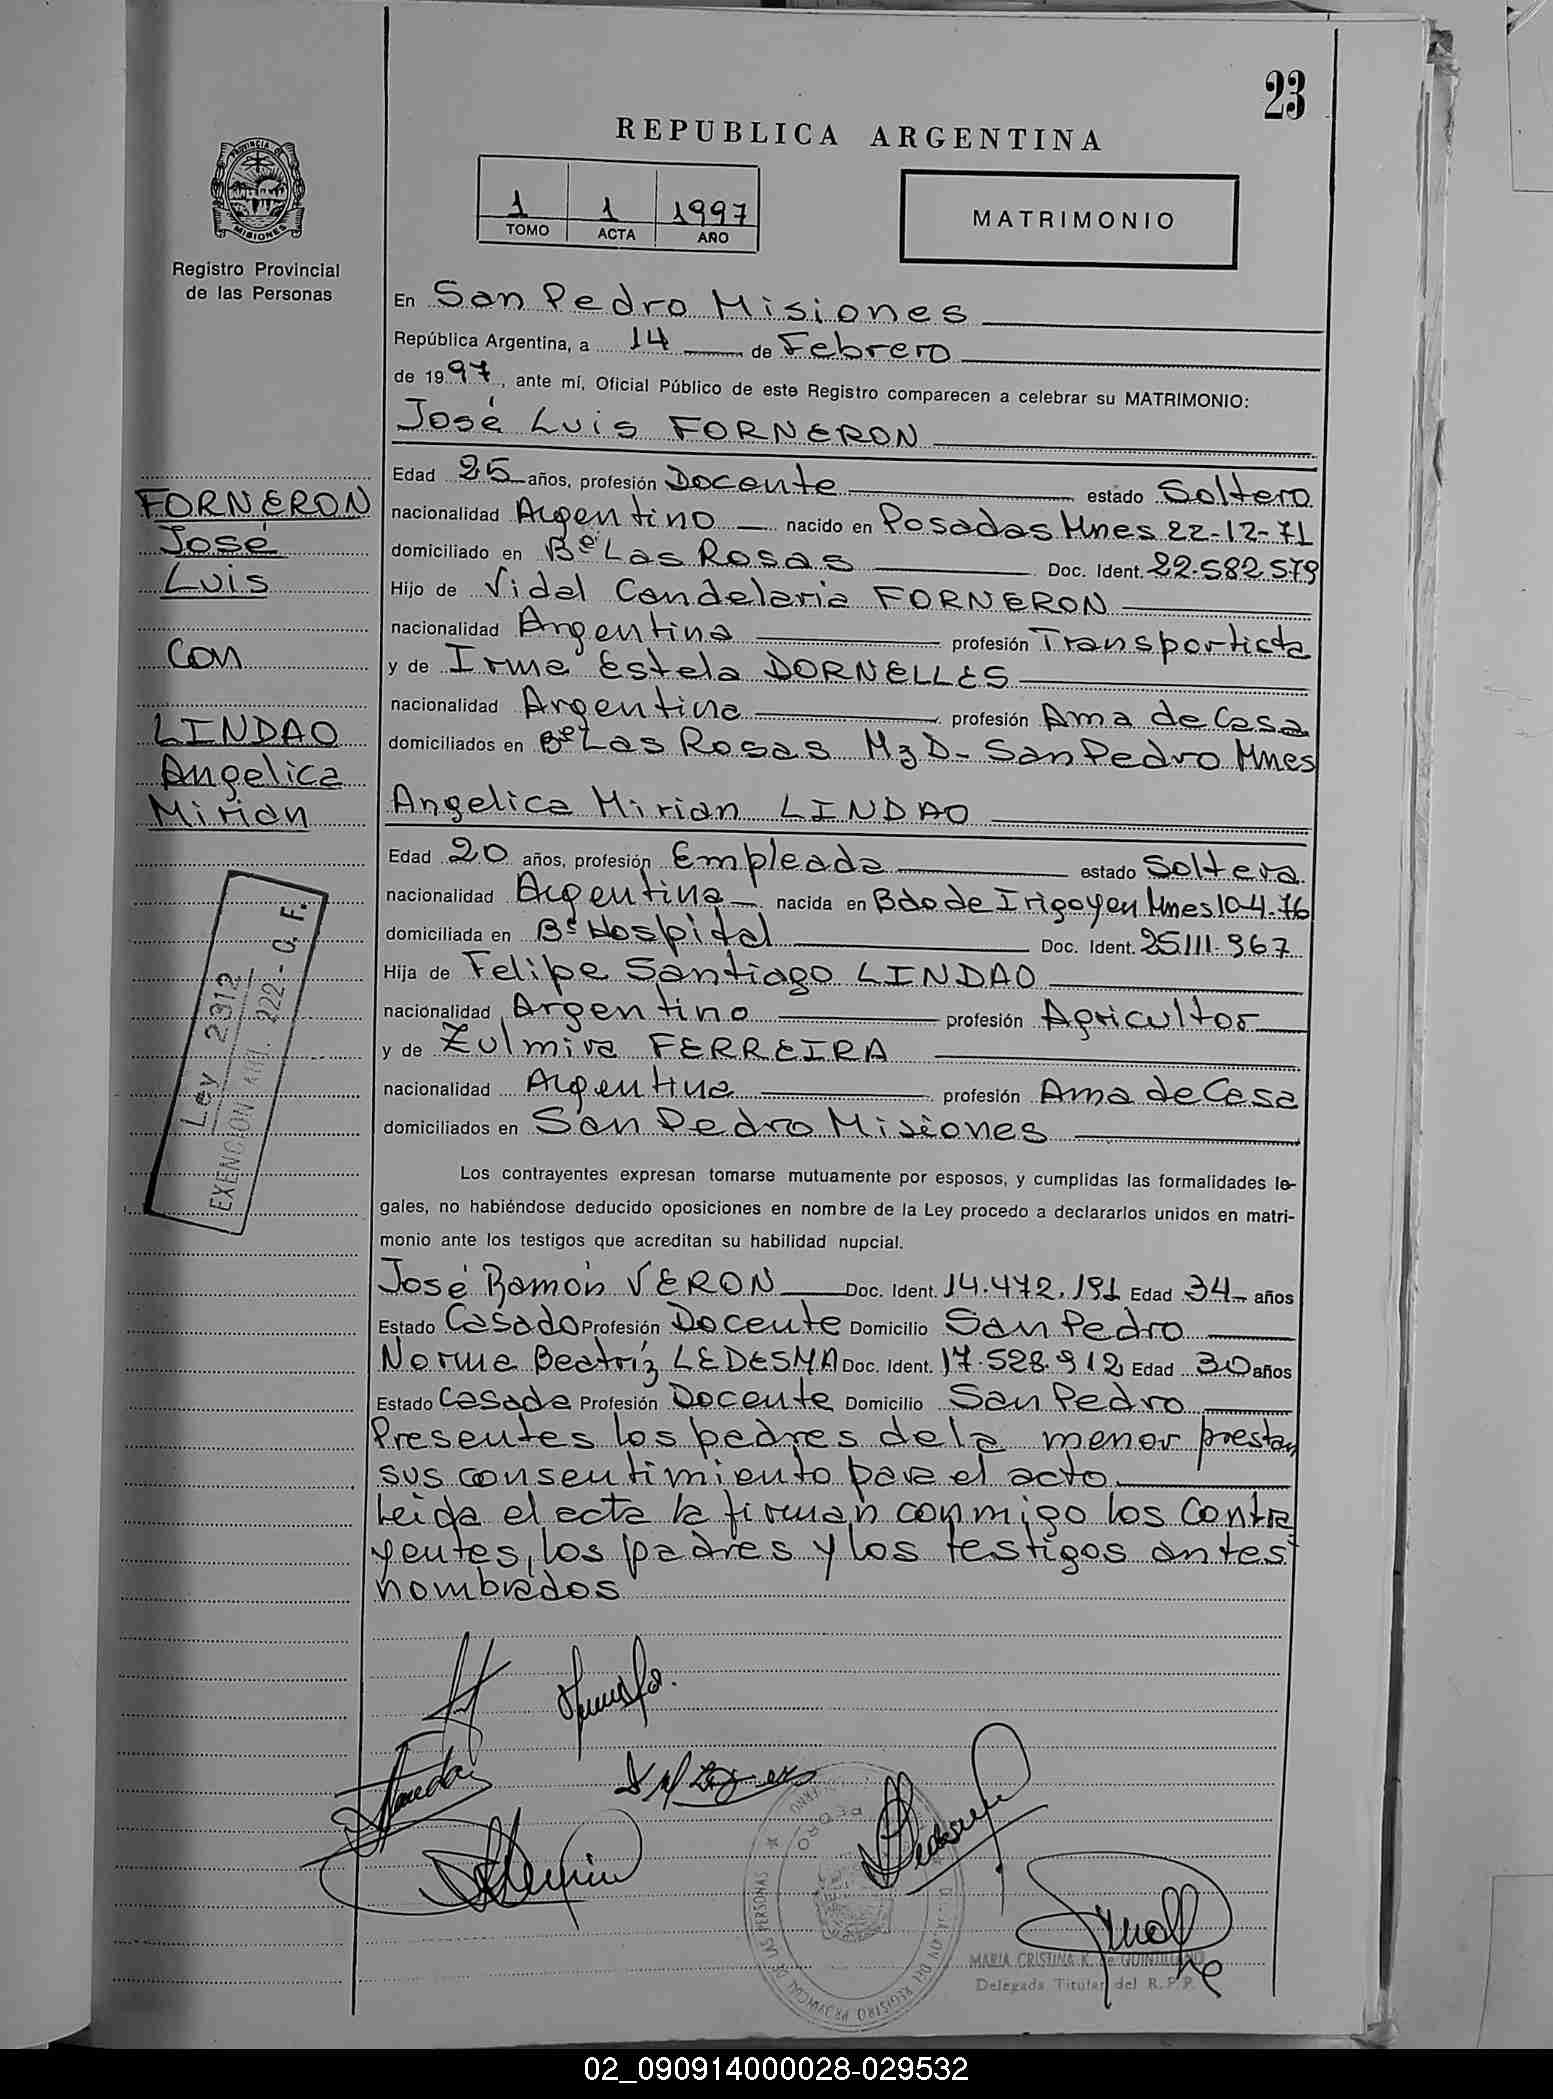 23
REPUBLICA ARGENTINA
1 1 1997
TOMO ACTA AÑO
MATRIMONIO
PROVINCIA DE MISIONES
Registro Provincial
de las Personas
En San Pedro Misiones
República Argentina, a 14 de Febrero
de 1997, ante mí, Oficial Público de este Registro comparecen a celebrar su MATRIMONIO:
José Luis FORNERON
Edad 25 años, profesión Docente estado Soltero
nacionalidad Argentino nacido en Posadas Mnes 22-12-71
domiciliado en Bº Las Rosas Doc. Ident. 22.582.579
Hijo de Vidal Candelaria FORNERON
nacionalidad Argentina profesión Transportista
y de Irma Estela DORNELLES
nacionalidad Argentina profesión Ama de Casa
domiciliados en Bº Las Rosas Mz D- San Pedro Mnes
FORNERON
José
Luis
con
LINDAO
Angelica
Mirian
Angelica Mirian LINDAO
Edad 20 años, profesión Empleada estado Soltera
nacionalidad Argentina nacida en Bdo de Irigoyen Mnes 10-4-76
domiciliada en Bº Hospital Doc. Ident. 25.111.967
Hija de Felipe Santiago LINDAO
nacionalidad Argentino profesión Agricultor
y de Zulmira FERREIRA
nacionalidad Argentina profesión Ama de Casa
domiciliados en San Pedro Misiones
Ley 2312
EXENCION Art. 222 - C. F.
Los contrayentes expresan tomarse mutuamente por esposos, y cumplidas las formalidades le-
gales, no habiéndose deducido oposiciones en nombre de la Ley procedo a declararlos unidos en matri-
monio ante los testigos que acreditan su habilidad nupcial.
José Ramón VERON Doc. Ident. 14.472.191 Edad 34 años
Estado Casado Profesión Docente Domicilio San Pedro
Norma Beatríz LEDESMA Doc. Ident. 17.528.912 Edad 30 años
Estado Casada Profesión Docente Domicilio San Pedro
Presentes los padres de la menor prestan
sus consentimiento para el acto
Leida el acta la firman conmigo los Contra
yentes, los padres y los testigos antes
nombrados
MARIA CRISTINA K. de
Delegada Titular del R. P. P.
02_090914000028-029532